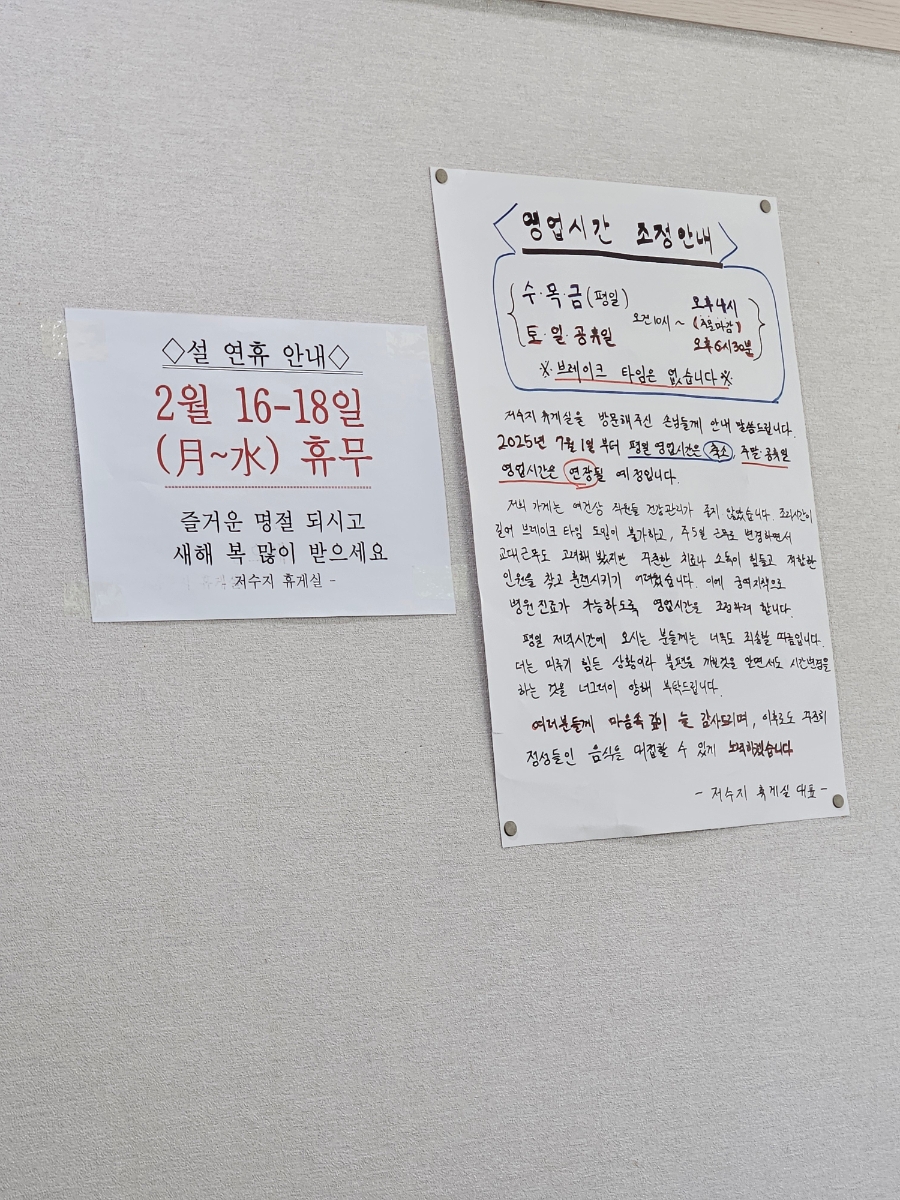 ◇설 연휴 안내◇
2월 16-18일
(月~水) 휴무
즐거운 명절 되시고
새해 복 많이 받으세요
저수지 휴게실 -
영업시간 조정안내
수·목·금(평일)
토·일·공휴일
오전10시 ~
오후 4시
(주문마감)
오후 6시 30분
※브레이크 타임은 없습니다※
저수지 휴게실을 방문해주신 손님들께 안내 말씀드립니다.
2025년 7월 1일부터 평일 영업시간은 축소, 주말·공휴일
영업시간은 연장될 예정입니다.
저희 가게는 여건상 직원들 건강관리가 좋지 않았습니다. 조리시간이
길어 브레이크 타임 도입이 불가하고, 주5일 근무로 변경하면서
교대근무도 고려해 봤지만 꾸준한 치료나 소독이 힘들고 적합한
인원을 찾고 훈련시키기 어려웠습니다. 이에 궁여지책으로
병원진료가 가능하도록 영업시간을 조절하려 합니다.
평일 저녁시간에 오시는 분들께는 너무도 죄송할 따름입니다.
더는 미루기 힘든 상황이라 불편을 끼칠것을 알면서도 시간변경을
하는 것을 너그러이 양해 부탁드립니다.
여러분들께 마음속 깊이 늘 감사드리며, 이후로도 꾸준히
정성들인 음식을 대접할 수 있게 노력하겠습니다
- 저수지 휴게실 대표 -